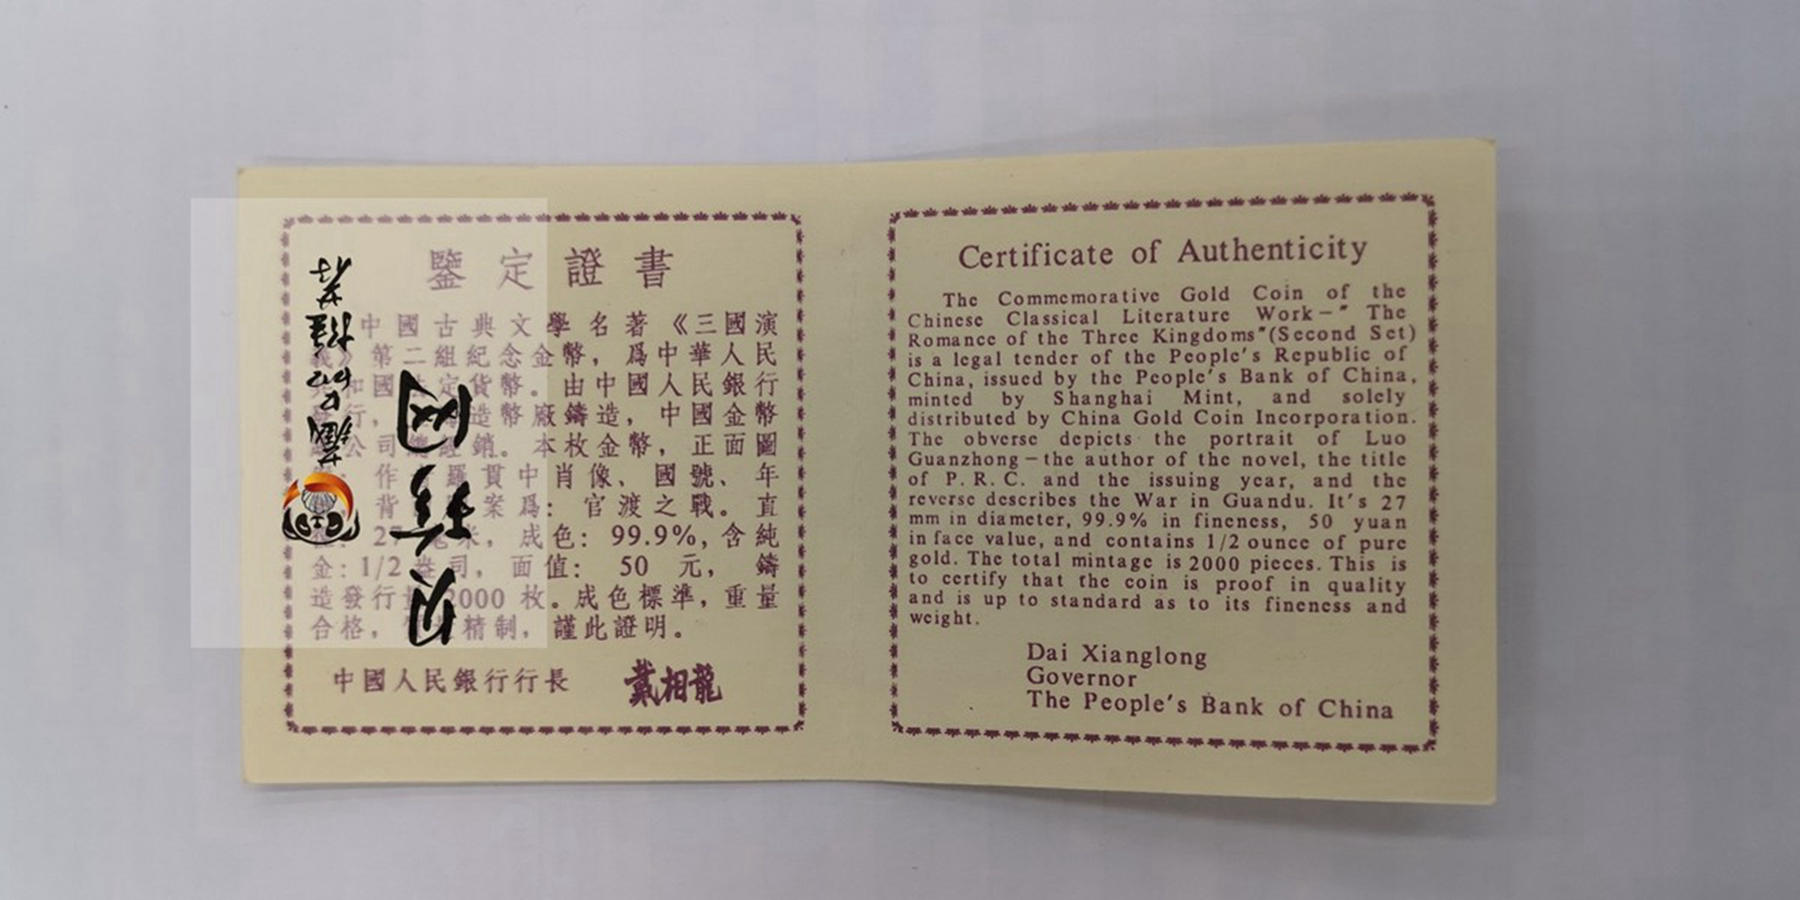 鑒定證書
中國古典文學名著《三國演
義》第二組紀念金幣，爲中華人民
和國法定貨幣。由中國人民銀行
行，造幣廠鑄造，中國金幣
公司總經銷。本枚金幣，正面圖
作羅貫中肖像、國號、年
背案爲：官渡之戰。直
27毫米，成色：99.9%，含純
金：1/2盎司，面值：50元，鑄
造發行量2000枚。成色標準，重量
合格，精制，謹此證明。
中國人民銀行行長 戴相龍
Certificate of Authenticity
The Commemorative Gold Coin of the
Chinese Classical Literature Work—" The
Romance of the Three Kingdoms"(Second Set)
is a legal tender of the People's Republic of
China, issued by the People's Bank of China,
minted by Shanghai Mint, and solely
distributed by China Gold Coin Incorporation.
The obverse depicts the portrait of Luo
Guanzhong—the author of the novel, the title
of P.R.C. and the issuing year, and the
reverse describes the War in Guandu. It's 27
mm in diameter, 99.9% in fineness, 50 yuan
in face value, and contains 1/2 ounce of pure
gold. The total mintage is 2000 pieces. This is
to certify that the coin is proof in quality
and is up to standard as to its fineness and
weight.
Dai Xianglong
Governor
The People's Bank of China